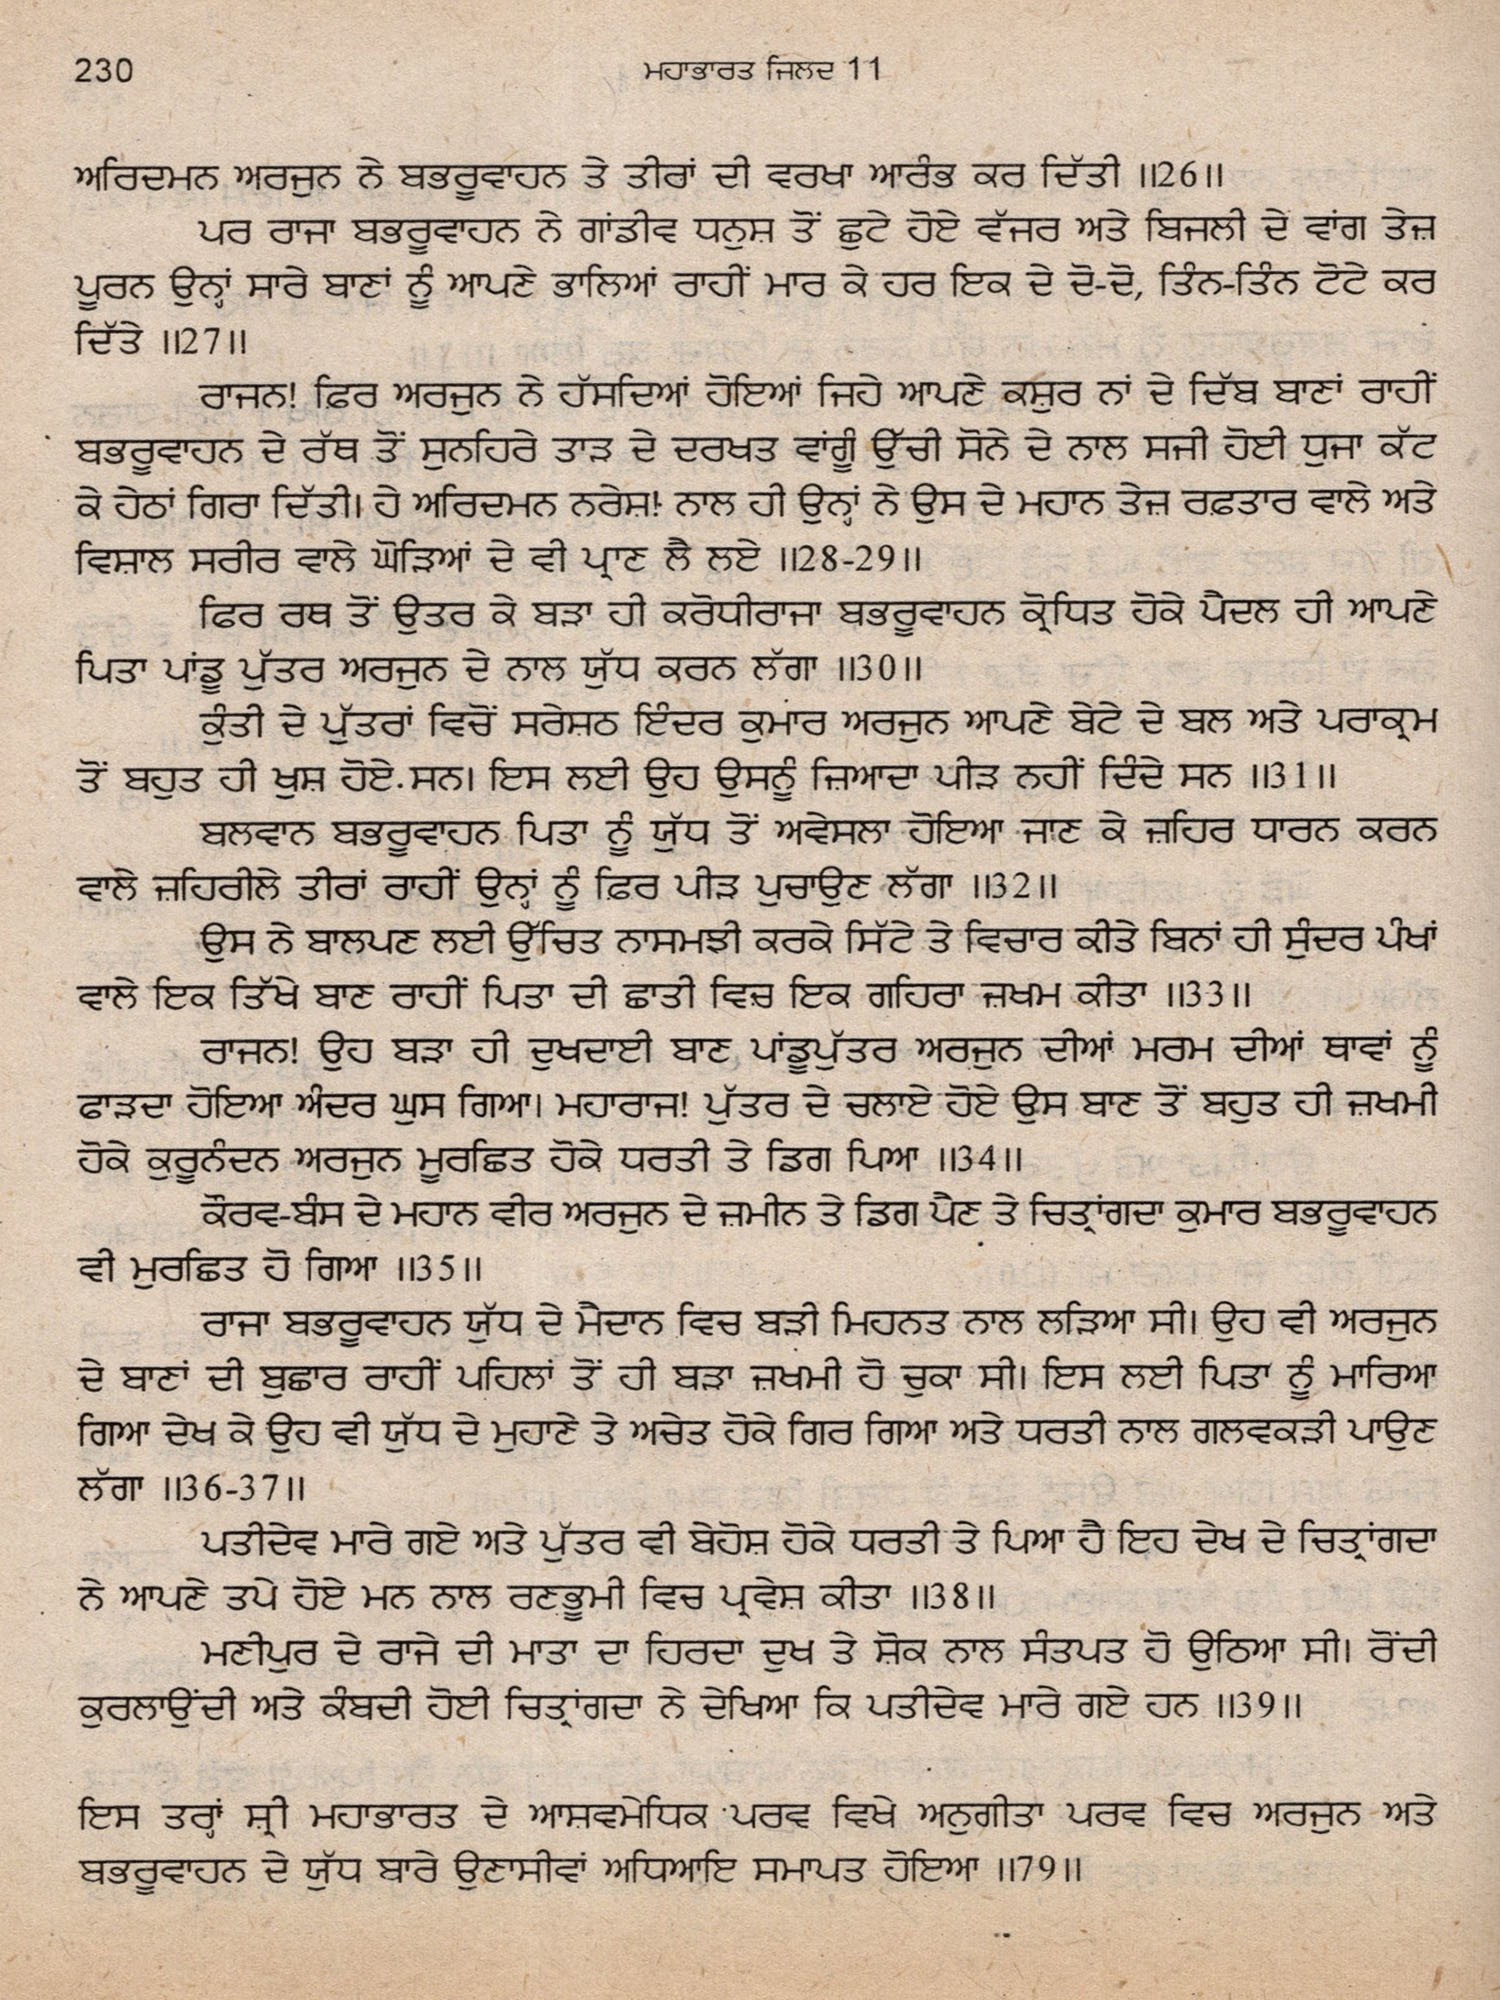 230
ਮਹਾਭਾਰਤ ਜਿਲਦ 11
ਅਰਿਦਮਨ ਅਰਜੁਨ ਨੇ ਬਭਰੂਵਾਹਨ ਤੇ ਤੀਰਾਂ ਦੀ ਵਰਖਾ ਆਰੰਭ ਕਰ ਦਿੱਤੀ ॥26॥
ਪਰ ਰਾਜਾ ਬਭਰੂਵਾਹਨ ਨੇ ਗਾਂਡੀਵ ਧਨੁਸ਼ ਤੋਂ ਛੁਟੇ ਹੋਏ ਵੱਜਰ ਅਤੇ ਬਿਜਲੀ ਦੇ ਵਾਂਗ ਤੇਜ਼
ਪੂਰਨ ਉਨ੍ਹਾਂ ਸਾਰੇ ਬਾਣਾਂ ਨੂੰ ਆਪਣੇ ਭਾਲਿਆਂ ਰਾਹੀਂ ਮਾਰ ਕੇ ਹਰ ਇਕ ਦੇ ਦੋ-ਦੋ, ਤਿੰਨ-ਤਿੰਨ ਟੋਟੇ ਕਰ
ਦਿੱਤੇ ॥27॥
ਰਾਜਨ! ਫ਼ਿਰ ਅਰਜੁਨ ਨੇ ਹੱਸਦਿਆਂ ਹੋਇਆਂ ਜਿਹੇ ਆਪਣੇ ਕਸ਼ੁਰ ਨਾਂ ਦੇ ਦਿੱਬ ਬਾਣਾਂ ਰਾਹੀਂ
ਬਭਰੂਵਾਹਨ ਦੇ ਰੱਥ ਤੋਂ ਸੁਨਹਿਰੇ ਤਾੜ ਦੇ ਦਰਖਤ ਵਾਂਗੂੰ ਉੱਚੀ ਸੋਨੇ ਦੇ ਨਾਲ ਸਜੀ ਹੋਈ ਧੁਜਾ ਕੱਟ
ਕੇ ਹੇਠਾਂ ਗਿਰਾ ਦਿੱਤੀ। ਹੇ ਅਰਿਦਮਨ ਨਰੇਸ਼! ਨਾਲ ਹੀ ਉਨ੍ਹਾਂ ਨੇ ਉਸ ਦੇ ਮਹਾਨ ਤੇਜ਼ ਰਫ਼ਤਾਰ ਵਾਲੇ ਅਤੇ
ਵਿਸ਼ਾਲ ਸਰੀਰ ਵਾਲੇ ਘੋੜਿਆਂ ਦੇ ਵੀ ਪ੍ਰਾਣ ਲੈ ਲਏ ॥28-29॥
ਫਿਰ ਰਥ ਤੋਂ ਉਤਰ ਕੇ ਬੜਾ ਹੀ ਕਰੋਧੀਰਾਜਾ ਬਭਰੂਵਾਹਨ ਕ੍ਰੋਧਿਤ ਹੋਕੇ ਪੈਦਲ ਹੀ ਆਪਣੇ
ਪਿਤਾ ਪਾਂਡੂ ਪੁੱਤਰ ਅਰਜੁਨ ਦੇ ਨਾਲ ਯੁੱਧ ਕਰਨ ਲੱਗਾ ॥30॥
ਕੁੰਤੀ ਦੇ ਪੁੱਤਰਾਂ ਵਿਚੋਂ ਸਰੇਸ਼ਠ ਇੰਦਰ ਕੁਮਾਰ ਅਰਜੁਨ ਆਪਣੇ ਬੇਟੇ ਦੇ ਬਲ ਅਤੇ ਪਰਾਕ੍ਰਮ
ਤੋਂ ਬਹੁਤ ਹੀ ਖੁਸ਼ ਹੋਏ ਸਨ। ਇਸ ਲਈ ਉਹ ਉਸਨੂੰ ਜ਼ਿਆਦਾ ਪੀੜ ਨਹੀਂ ਦਿੰਦੇ ਸਨ ॥31॥
ਬਲਵਾਨ ਬਭਰੂਵਾਹਨ ਪਿਤਾ ਨੂੰ ਯੁੱਧ ਤੋਂ ਅਵੇਸਲਾ ਹੋਇਆ ਜਾਣ ਕੇ ਜ਼ਹਿਰ ਧਾਰਨ ਕਰਨ
ਵਾਲੇ ਜ਼ਹਿਰੀਲੇ ਤੀਰਾਂ ਰਾਹੀਂ ਉਨ੍ਹਾਂ ਨੂੰ ਫ਼ਿਰ ਪੀੜ ਪੁਚਾਉਣ ਲੱਗਾ ॥32॥
ਉਸ ਨੇ ਬਾਲਪਣ ਲਈ ਉੱਚਿਤ ਨਾਸਮਝੀ ਕਰਕੇ ਸਿੱਟੇ ਤੇ ਵਿਚਾਰ ਕੀਤੇ ਬਿਨਾਂ ਹੀ ਸੁੰਦਰ ਪੰਖਾਂ
ਵਾਲੇ ਇਕ ਤਿੱਖੇ ਬਾਣ ਰਾਹੀਂ ਪਿਤਾ ਦੀ ਛਾਤੀ ਵਿਚ ਇਕ ਗਹਿਰਾ ਜ਼ਖਮ ਕੀਤਾ ॥33॥
ਰਾਜਨ! ਉਹ ਬੜਾ ਹੀ ਦੁਖਦਾਈ ਬਾਣ ਪਾਂਡੂਪੁੱਤਰ ਅਰਜੁਨ ਦੀਆਂ ਮਰਮ ਦੀਆਂ ਥਾਵਾਂ ਨੂੰ
ਫਾੜਦਾ ਹੋਇਆ ਅੰਦਰ ਘੁਸ ਗਿਆ। ਮਹਾਰਾਜ! ਪੁੱਤਰ ਦੇ ਚਲਾਏ ਹੋਏ ਉਸ ਬਾਣ ਤੋਂ ਬਹੁਤ ਹੀ ਜ਼ਖਮੀ
ਹੋਕੇ ਕੁਰੂਨੰਦਨ ਅਰਜੁਨ ਮੂਰਛਿਤ ਹੋਕੇ ਧਰਤੀ ਤੇ ਡਿਗ ਪਿਆ ॥34॥
ਕੌਰਵ-ਬੰਸ ਦੇ ਮਹਾਨ ਵੀਰ ਅਰਜੁਨ ਦੇ ਜ਼ਮੀਨ ਤੇ ਡਿਗ ਪੈਣ ਤੇ ਚਿਤ੍ਰਾਂਗਦਾ ਕੁਮਾਰ ਬਭਰੂਵਾਹਨ
ਵੀ ਮੁਰਛਿਤ ਹੋ ਗਿਆ ॥35॥
ਰਾਜਾ ਬਭਰੂਵਾਹਨ ਯੁੱਧ ਦੇ ਮੈਦਾਨ ਵਿਚ ਬੜੀ ਮਿਹਨਤ ਨਾਲ ਲੜਿਆ ਸੀ। ਉਹ ਵੀ ਅਰਜੁਨ
ਦੇ ਬਾਣਾਂ ਦੀ ਬੁਛਾਰ ਰਾਹੀਂ ਪਹਿਲਾਂ ਤੋਂ ਹੀ ਬੜਾ ਜ਼ਖਮੀ ਹੋ ਚੁਕਾ ਸੀ। ਇਸ ਲਈ ਪਿਤਾ ਨੂੰ ਮਾਰਿਆ
ਗਿਆ ਦੇਖ ਕੇ ਉਹ ਵੀ ਯੁੱਧ ਦੇ ਮੁਹਾਣੇ ਤੇ ਅਚੇਤ ਹੋਕੇ ਗਿਰ ਗਿਆ ਅਤੇ ਧਰਤੀ ਨਾਲ ਗਲਵਕੜੀ ਪਾਉਣ
ਲੱਗਾ ॥36-37॥
ਪਤੀਦੇਵ ਮਾਰੇ ਗਏ ਅਤੇ ਪੁੱਤਰ ਵੀ ਬੇਹੋਸ਼ ਹੋਕੇ ਧਰਤੀ ਤੇ ਪਿਆ ਹੈ ਇਹ ਦੇਖ ਦੇ ਚਿਤ੍ਰਾਂਗਦਾ
ਨੇ ਆਪਣੇ ਤਪੇ ਹੋਏ ਮਨ ਨਾਲ ਰਣਭੂਮੀ ਵਿਚ ਪ੍ਰਵੇਸ਼ ਕੀਤਾ ॥38॥
ਮਣੀਪੁਰ ਦੇ ਰਾਜੇ ਦੀ ਮਾਤਾ ਦਾ ਹਿਰਦਾ ਦੁਖ ਤੇ ਸ਼ੋਕ ਨਾਲ ਸੰਤਪਤ ਹੋ ਉਠਿਆ ਸੀ। ਰੋਂਦੀ
ਕੁਰਲਾਉਂਦੀ ਅਤੇ ਕੰਬਦੀ ਹੋਈ ਚਿਤ੍ਰਾਂਗਦਾ ਨੇ ਦੇਖਿਆ ਕਿ ਪਤੀਦੇਵ ਮਾਰੇ ਗਏ ਹਨ ॥39॥
ਇਸ ਤਰ੍ਹਾਂ ਸ਼੍ਰੀ ਮਹਾਭਾਰਤ ਦੇ ਆਸ਼ਵਮੇਧਿਕ ਪਰਵ ਵਿਖੇ ਅਨੁਗੀਤਾ ਪਰਵ ਵਿਚ ਅਰਜੁਨ ਅਤੇ
ਬਭਰੂਵਾਹਨ ਦੇ ਯੁੱਧ ਬਾਰੇ ਉਣਾਸੀਵਾਂ ਅਧਿਆਇ ਸਮਾਪਤ ਹੋਇਆ ॥79॥